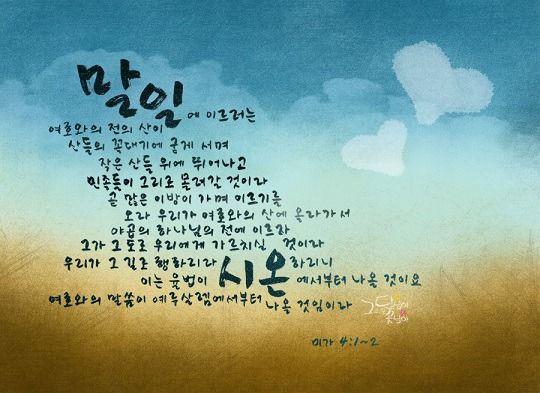 말일에 이르러는
여호와의 전의 산이
산들의 꼭대기에 굳게 서며
작은 산들 위에 뛰어나고
민족들이 그리로 몰려갈 것이라
곧 많은 이방이 가며 이르기를
오라 우리가 여호와의 산에 올라가서
야곱의 하나님의 전에 이르자
그가 그 도로 우리에게 가르치실 것이라
우리가 그 길로 행하리라 하리니
이는 율법이 시온에서부터 나올 것이요
여호와의 말씀이 예루살렘에서부터 나올 것임이라
미가 4:1~2